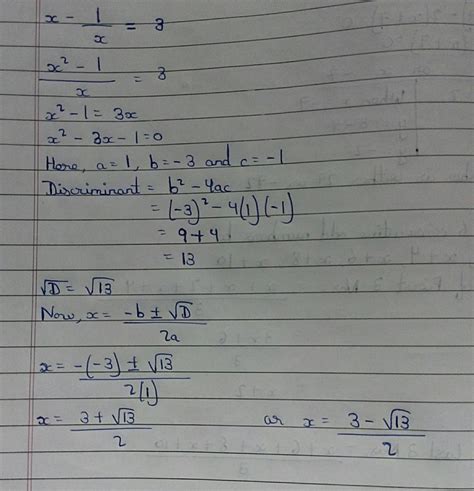 x - 1/x = 3
x² - 1/x = 3
x² - 1 = 3x
x² - 3x - 1 = 0
Here, a = 1, b = -3 and c = -1
Discriminant = b² - 4ac
= (-3)² - 4(1)(-1)
= 9 + 4
= 13
√D = √13
Now, x = -b ± √D / 2a
x = -(-3) ± √13 / 2(1)
x = 3 + √13 / 2 or x = 3 - √13 / 2